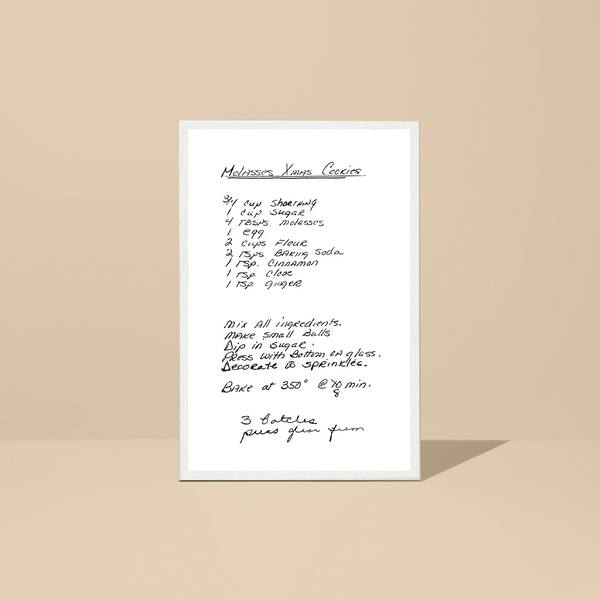 Molasses Xmas Cookies
3/4 cup shortning
1 cup sugar
4 TBSPS. molasses
1 egg
2 cups Flour
2 Tsps Baking Soda
1 Tsp. Cinnamon
1 Tsp. Clove
1 Tsp. Ginger
Mix All ingredients.
Make small Balls
Dip in Sugar.
Press with Bottom of glass.
Decorate sprinkles.
Bake at 350° @ 10 min.
8
3 batches